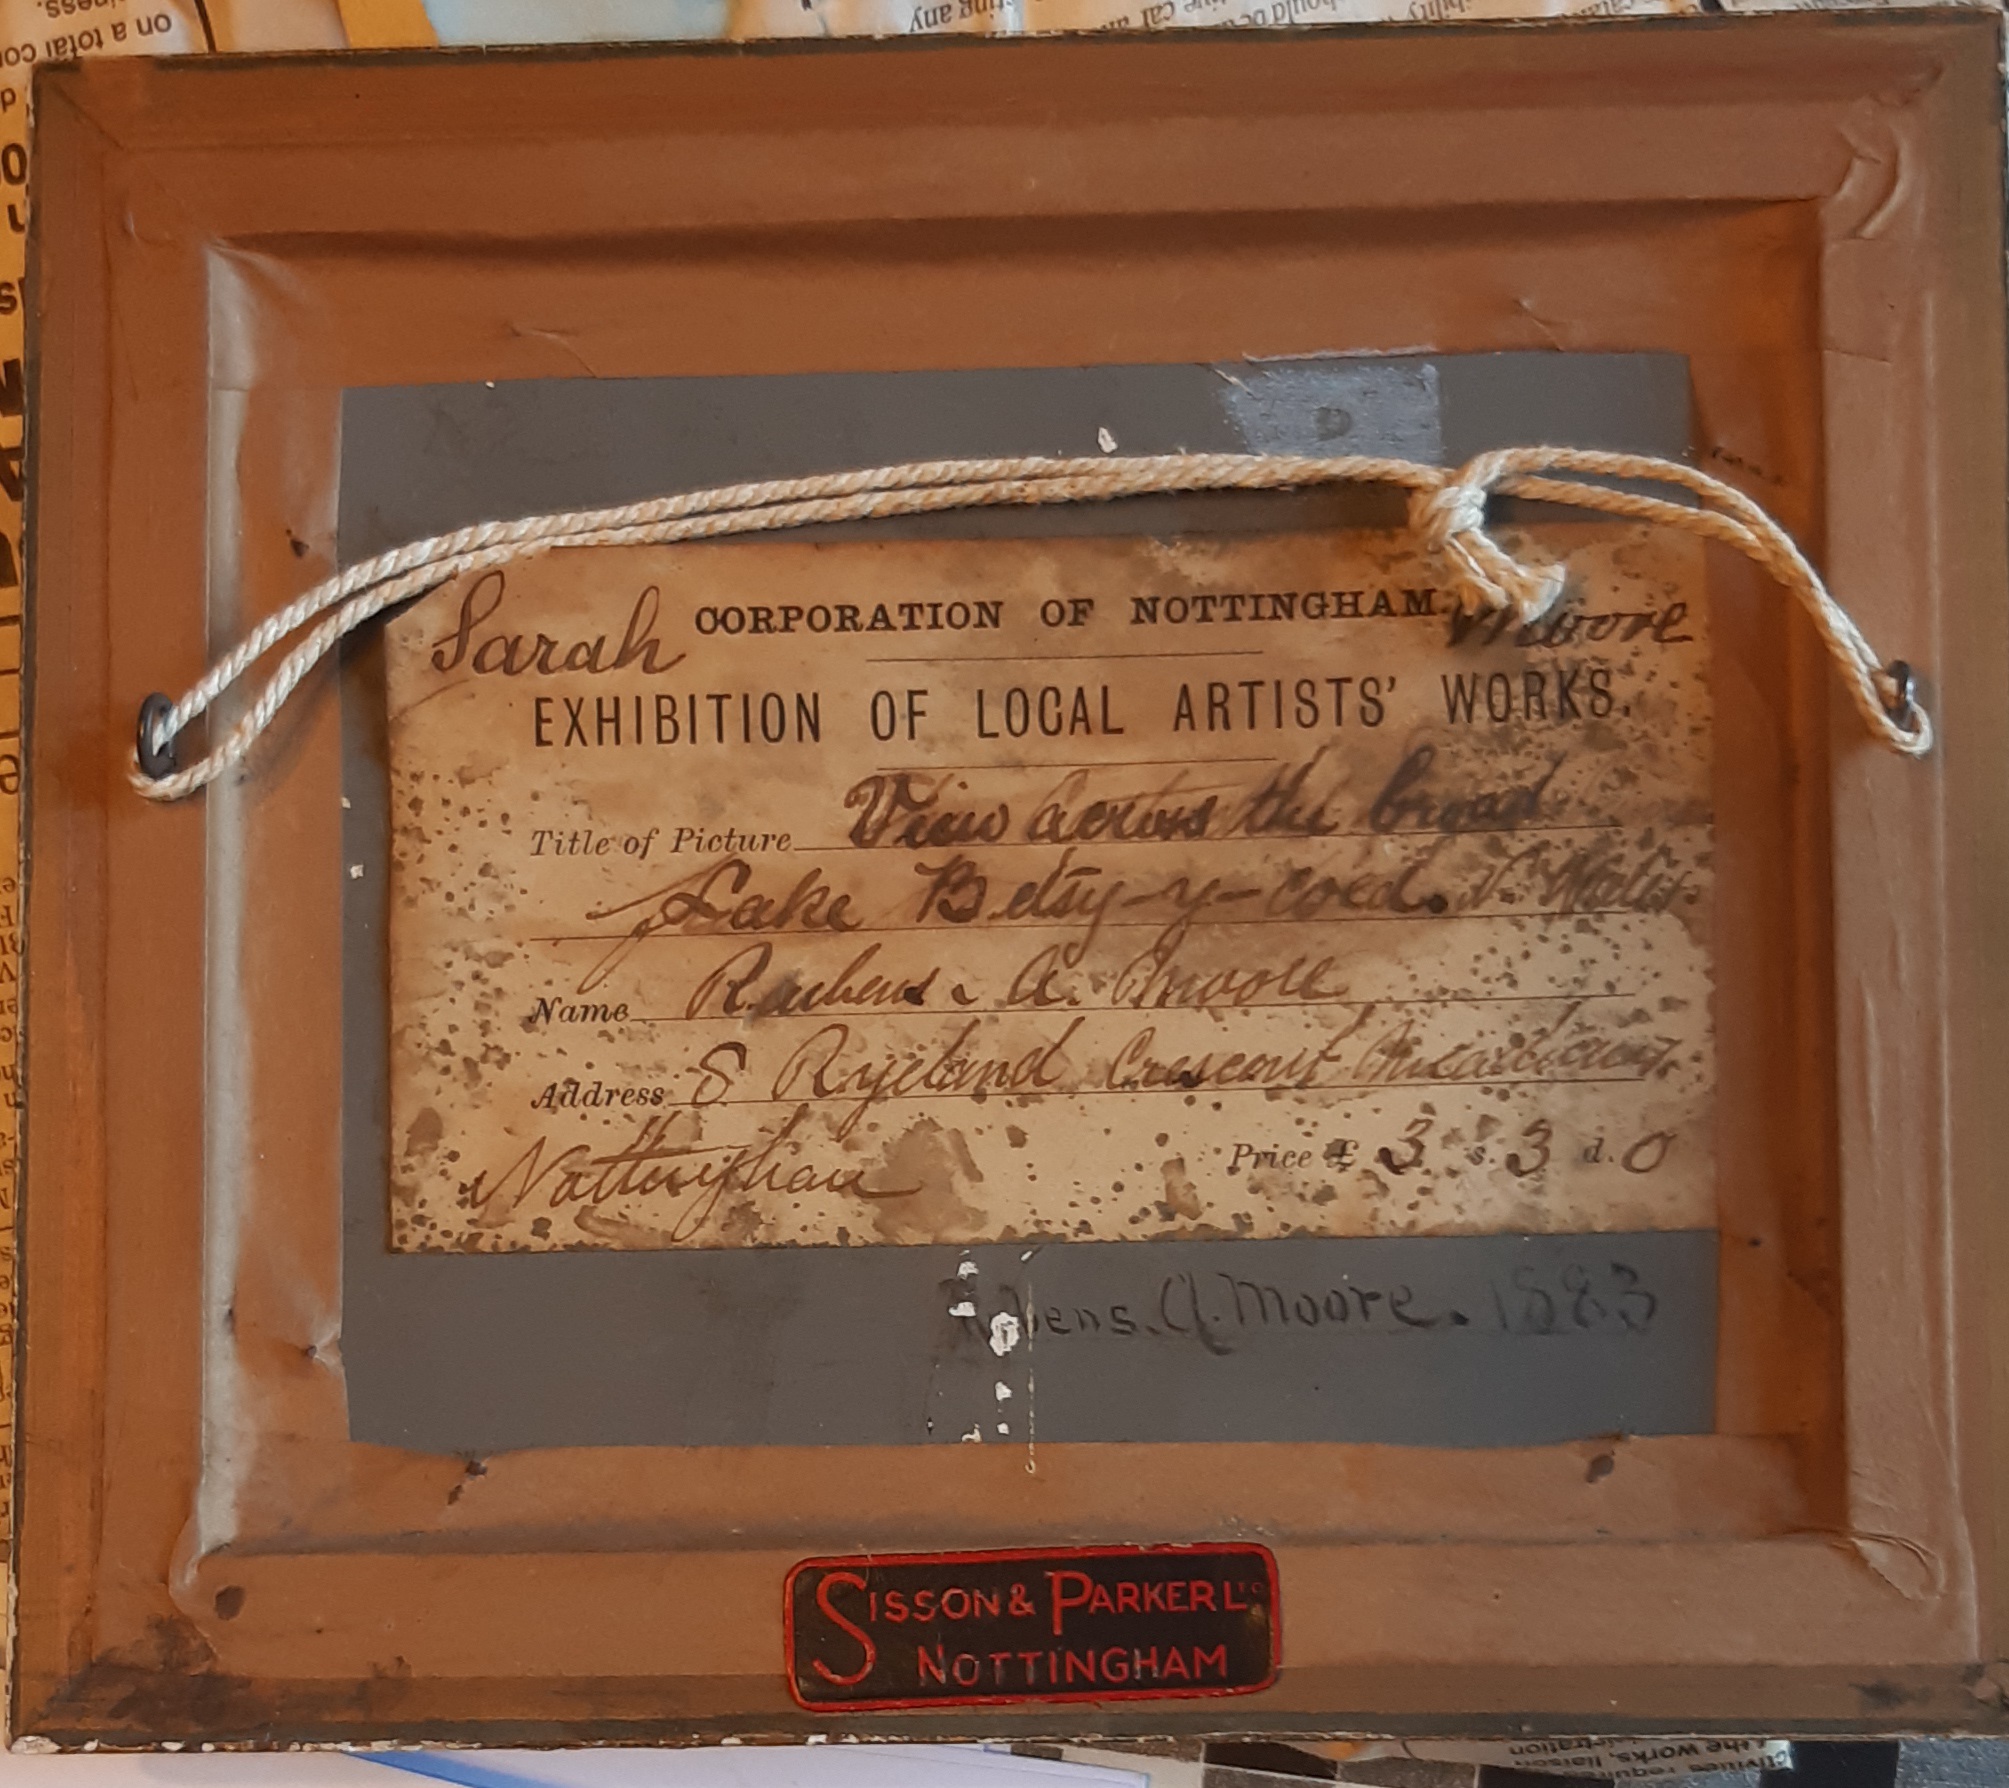 on a total
ting any
Sarah CORPORATION OF NOTTINGHAM. Moore
EXHIBITION OF LOCAL ARTISTS' WORKS.
Title of Picture View across the broad
Lake Betsy-y-coed. N. Wales.
Name Reubens. A. Moore
Address 8 Ryeland Crescent
Nottingham Price £ 3 s. 3 d. 0
A. Moore. 1883
SISSON & PARKER LTD
NOTTINGHAM